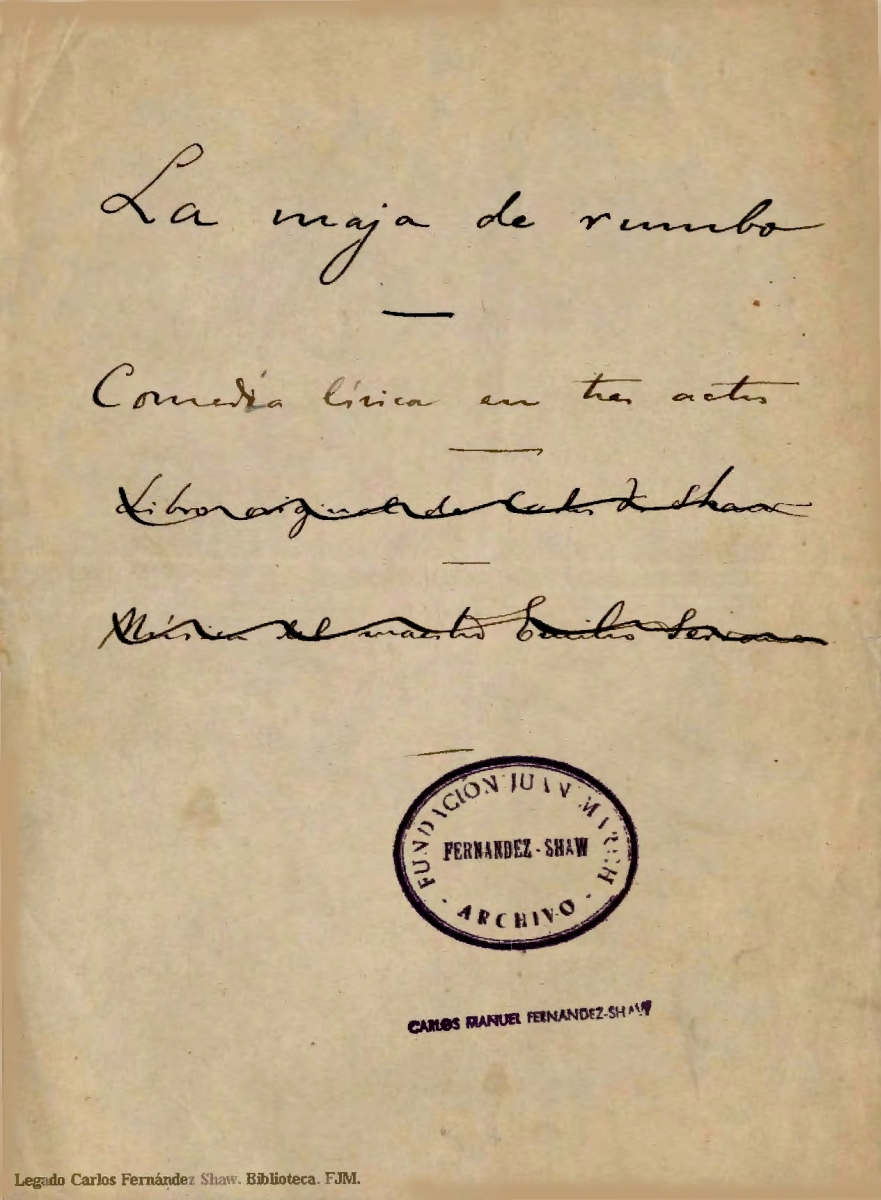 La maja de rumbo
Comedia lírica en tres actos
Libro original de Carlos F. Shaw
Música del maestro Emilio Serrano
FUNDACIÓN JUAN MARCH
FERNANDEZ - SHAW
- ARCHIVO -
CARLOS MANUEL FERNANDEZ-SHAW
Legado Carlos Fernández Shaw. Biblioteca. FJM.